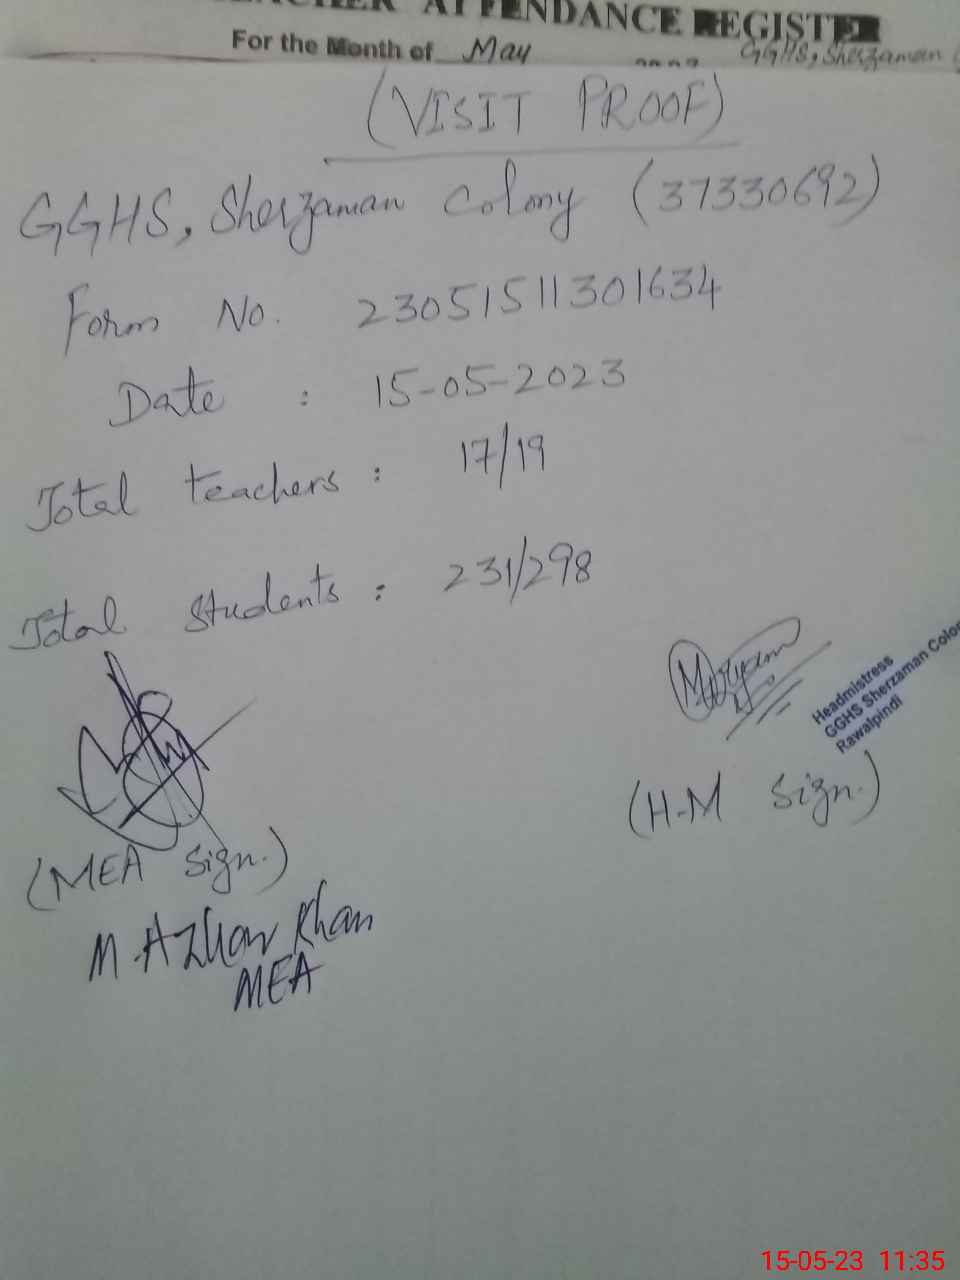 TEACHER ATTENDANCE REGISTER
For the Month of May 2023 GGHS, Sherzaman
(VISIT PROOF)
GGHS, Sherzaman Colony (37330692)
Form No. 23051511301634
Date : 15-05-2023
Total teachers : 17/19
Total Students : 231/298
Maryam
Headmistress
GGHS Sherzaman Colon
Rawalpindi
(H-M Sign.)
(MEA Sign.)
M. Azhar Khan
MEA
15-05-23 11:35